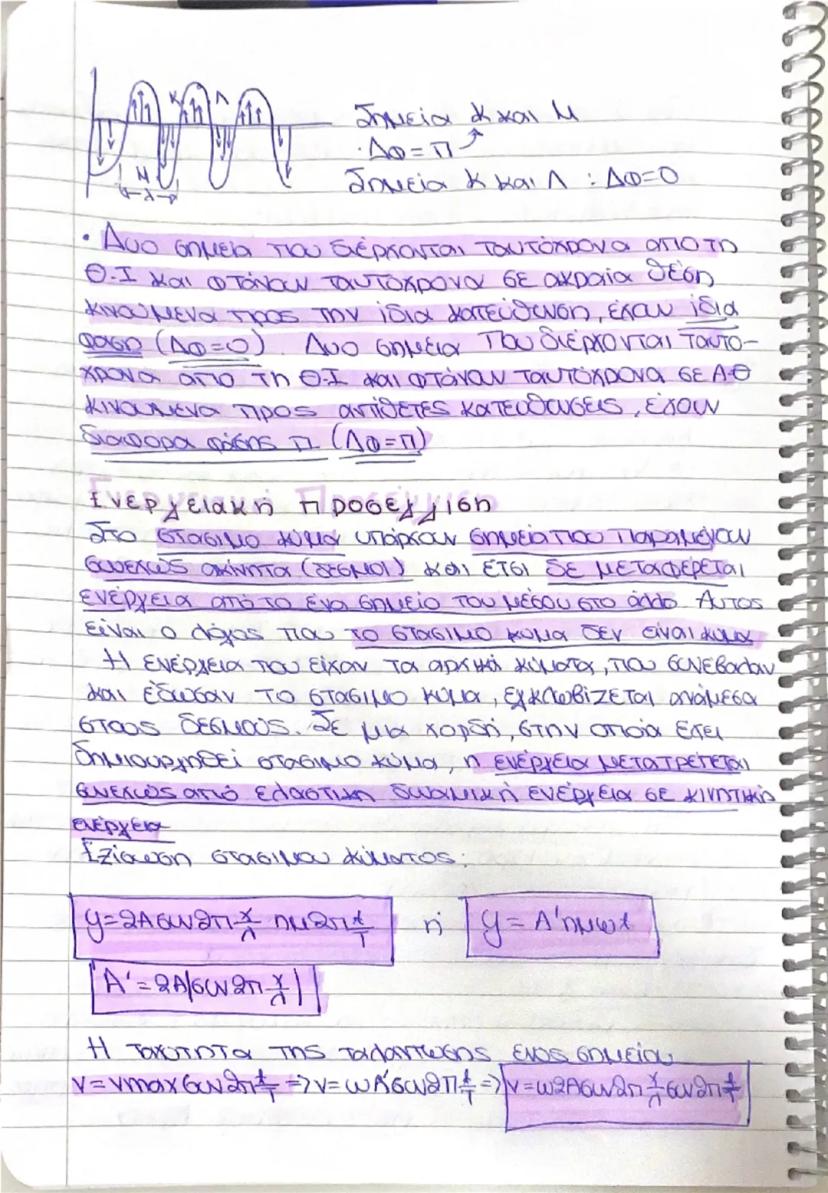 Κ Λ
Σημεία Κ και Μ
· Δφ = π
Μ
λ
Σημεία Κ και Λ : Δφ=0
· Δυο σημεία που διέρχονται ταυτόχρονα από τη
Θ.Ι και φτάνουν ταυτόχρονα σε ακραία θέση
κινούμενα προς την ίδια κατεύθυνση, έχουν ίδια
φάση (Δφ=0). Δυο σημεία που διέρχονται ταυτο-
χρονα από τη Θ.Ι και φτάνουν ταυτόχρονα σε Α.Θ
κινούμενα προς αντίθετες κατευθύνσεις, έχουν
διαφορα φάσης π (Δφ=π)
Ενεργειακή Προσέγγιση
Στο στάσιμο κύμα υπάρχουν σημεία που παραμένουν
συνεχώς ακίνητα (δεσμοί) και έτσι δε μεταφέρεται
ενέργεια από το ένα σημείο του μέσου στο άλλο. Αυτός
είναι ο λόγος που το στάσιμο κύμα δεν είναι κύμα
Η ενέργεια που είχαν τα αρχικά κύματα, που συνέβαλαν
και έδωσαν το στάσιμο κύμα, εγκλωβίζεται ανάμεσα
στους δεσμούς. Σε μια χορδή, στην οποία έχει
δημιουργηθεί στάσιμο κύμα, η ενέργεια μετατρέπεται
συνεχώς από ελαστική δυναμική ενέργεια σε κινητική
ενέργεια
Εξίσωση στάσιμου κύματος:
y=2Aσυν2π x/λ ημ2π t/T ή y = A'ημωt
A' = 2A|συν2π x/λ|
Η ταχύτητα της ταλάντωσης ενός σημείου
v = vmax συν2π t/T => v = ωA'συν2π t/T => v=ω2Aσυν2π x/λ συν2π t/T